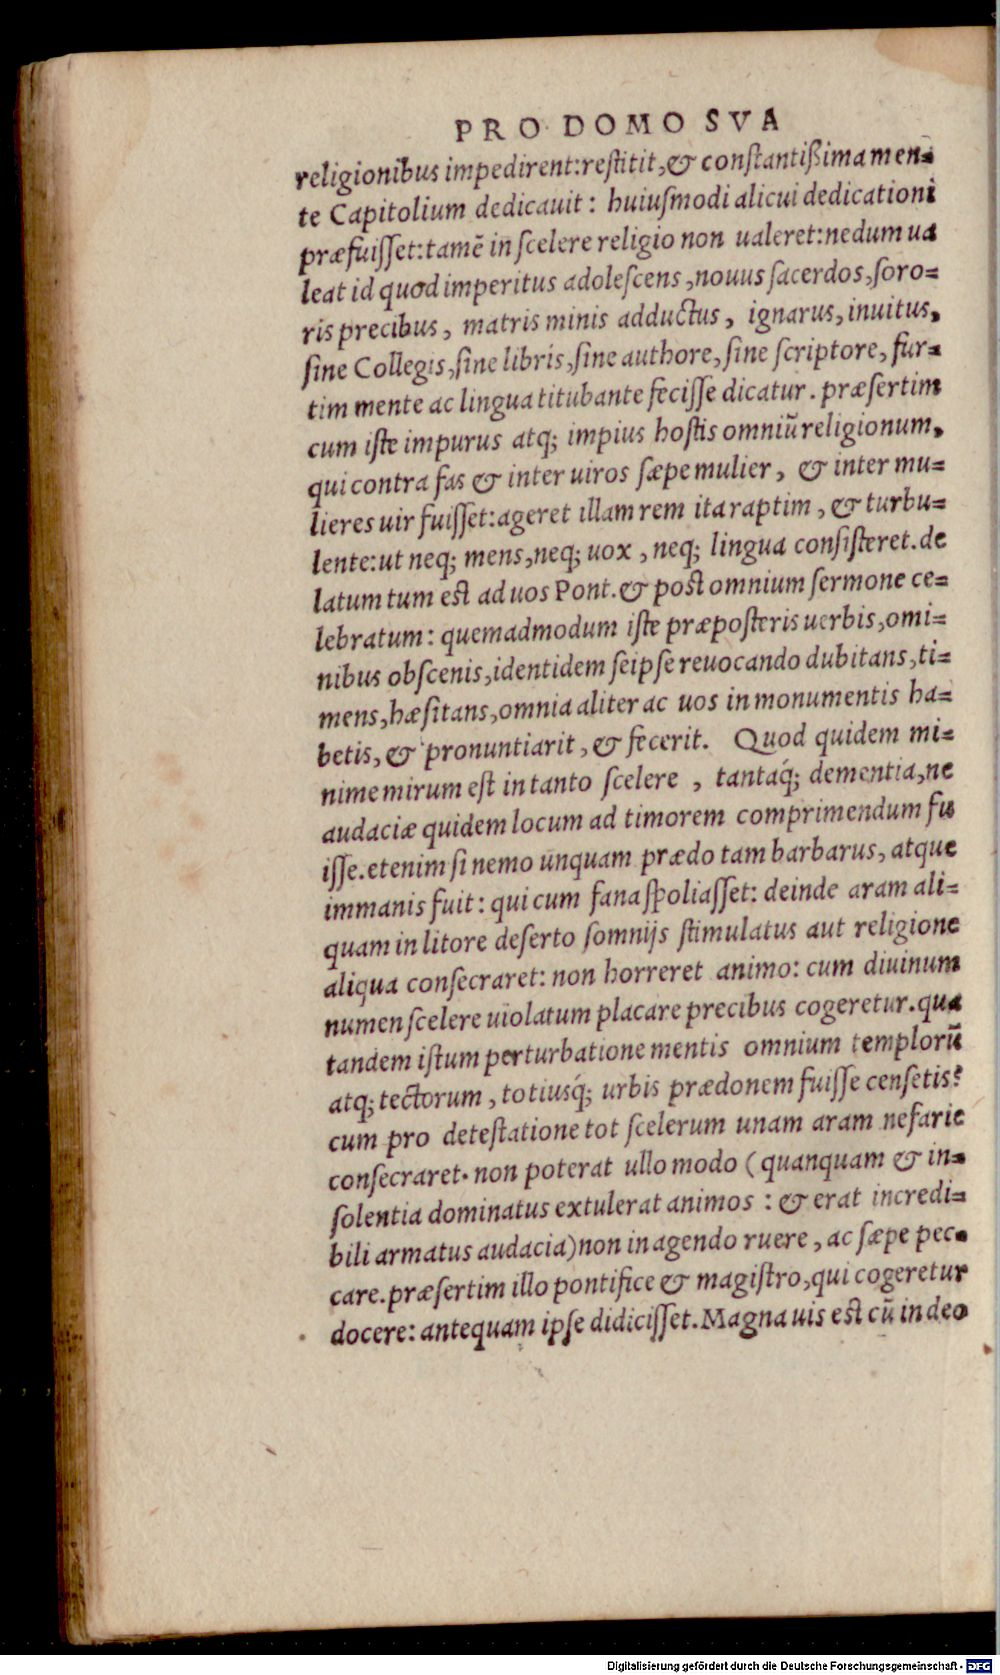 PRO DOMO SVA
religionibus impedirent:restitit,& constantißima men-
te Capitolium dedicauit: huiusmodi alicui dedicationi
præfuisset:tamē in scelere religio non ualeret:nedum ua
leat id quod imperitus adolescens,nouus sacerdos,soro-
ris precibus, matris minis adductus, ignarus,inuitus,
sine Collegis,sine libris,sine authore,sine scriptore, fur-
tim mente ac lingua titubante fecisse dicatur. præsertim
cum iste impurus atq; impius hostis omniū religionum,
qui contra fas & inter uiros sæpe mulier, & inter mu-
lieres uir fuisset:ageret illam rem ita raptim, & turbu-
lente:ut neq; mens,neq; uox, neq; lingua consisteret.de
latum tum est ad uos Pont.& post omnium sermone ce-
lebratum: quemadmodum iste præposteris uerbis,omi-
nibus obscenis,identidem seipse reuocando dubitans,ti-
mens,hæsitans,omnia aliter ac uos in monumentis ha-
betis, & pronuntiarit, & fecerit. Quod quidem mi-
nime mirum est in tanto scelere , tantaq́; dementia,ne
audaciæ quidem locum ad timorem comprimendum fu
isse.etenim si nemo unquam prædo tam barbarus, atque
immanis fuit: qui cum fana spoliasset: deinde aram ali-
quam in litore deserto somnijs stimulatus aut religione
aliqua consecraret: non horreret animo: cum diuinum
numen scelere uiolatum placare precibus cogeretur.qua
tandem istum perturbatione mentis omnium templorū
atq; tectorum, totiusq́; urbis prædonem fuisse censetis?
cum pro detestatione tot scelerum unam aram nefarie
consecraret. non poterat ullo modo (quanquam & in-
solentia dominatus extulerat animos : & erat incredi-
bili armatus audacia) non in agendo ruere, ac sæpe pec-
care.præsertim illo pontifice & magistro,qui cogeretur
docere: antequam ipse didicisset.Magna uis est cū in deo
Digitalisierung gefördert durch die Deutsche Forschungsgemeinschaft - DFG